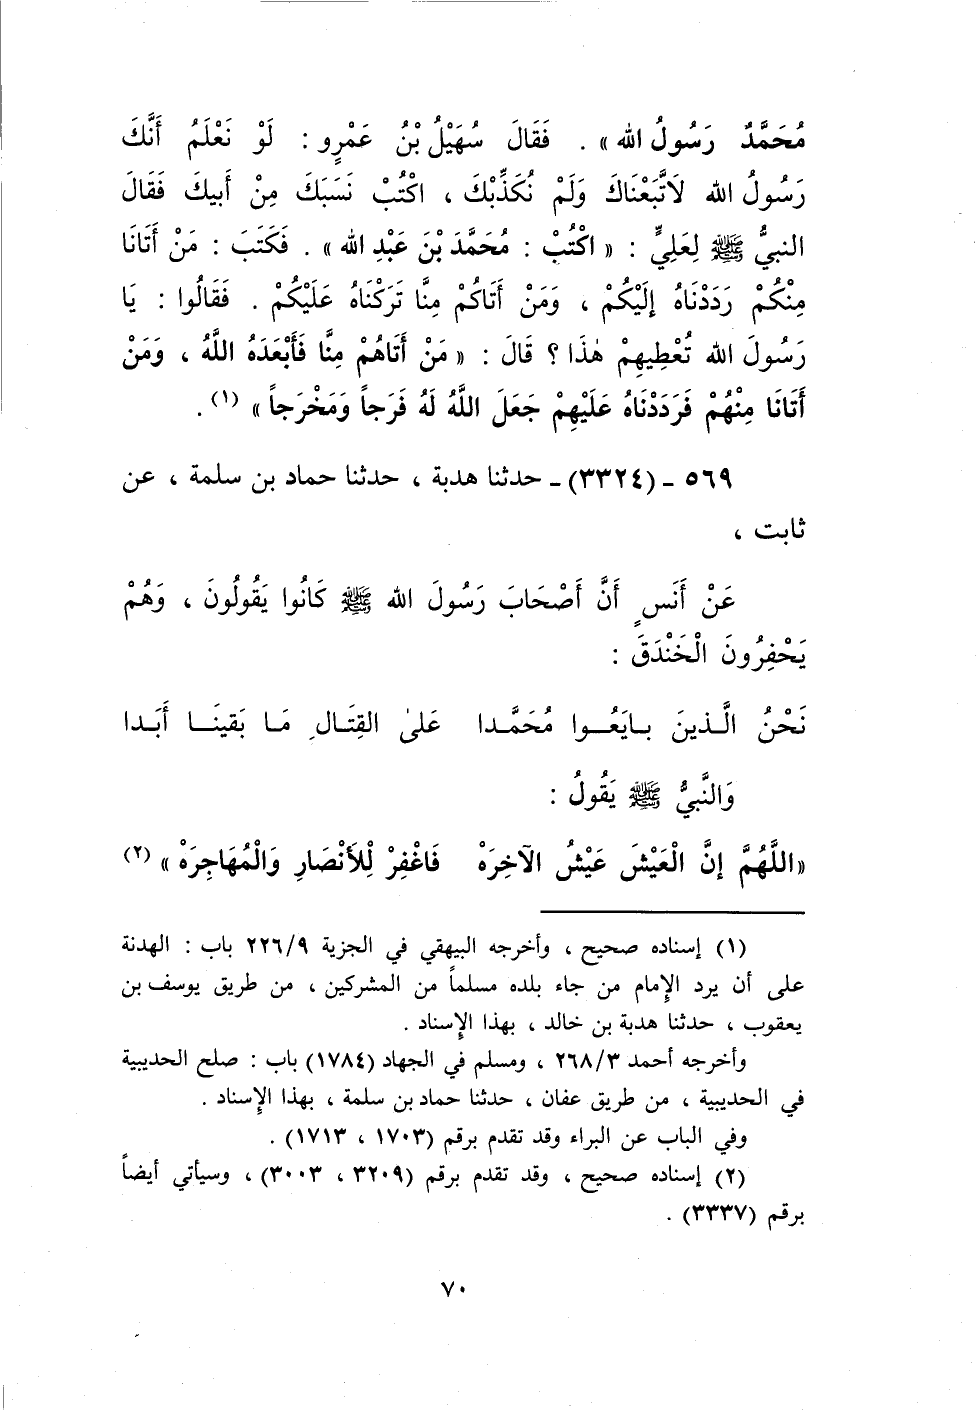 مُحَمَّدٌ رَسُولُ الله» . فَقَالَ سُهَيْلُ بْنُ عَمْرٍو : لَوْ نَعْلَمُ أَنَّكَ
رَسُولُ الله لَاتَّبَعْنَاكَ وَلَمْ نُكَذِّبْكَ ، اكْتُبْ نَسَبَكَ مِنْ أَبِيكَ فَقَالَ
النبيُّ ﷺ لِعَلِيٍّ : « اكْتُبْ : مُحَمَّدَ بْنَ عَبْدِ الله» . فَكَتَبَ : مَنْ أَتَانَا
مِنْكُمْ رَدَدْنَاهُ إِلَيْكُمْ ، وَمَنْ أَتَاكُمْ مِنَّا تَرَكْنَاهُ عَلَيْكُمْ . فَقَالُوا : يَا
رَسُولَ الله تُعْطِيهِمْ هٰذَا ؟ قَالَ : « مَنْ أَتَاهُمْ مِنَّا فَأَبْعَدَهُ اللَّهُ ، وَمَنْ
أَتَانَا مِنْهُمْ فَرَدَدْنَاهُ عَلَيْهِمْ جَعَلَ اللَّهُ لَهُ فَرَجاً وَمَخْرَجاً» (١) .
٥٦٩ ـ (٣٣٢٤) ـ حدثنا هدبة ، حدثنا حماد بن سلمة ، عن
ثابت ،
عَنْ أَنَسٍ أَنَّ أَصْحَابَ رَسُولَ الله ﷺ كَانُوا يَقُولُونَ ، وَهُمْ
يَحْفِرُونَ الْخَنْدَقَ :
نَحْنُ الَّـذينَ بـايَعُـوا مُحَمَّـدا عَلىٰ القِتَالِ مَـا بَقينَـا أَبَـدا
وَالنَّبيُّ ﷺ يَقُولُ :
«اللَّهُمَّ إنَّ الْعَيْشَ عَيْشُ الآخِرَهْ فَاغْفِرْ لِلْأَنْصَارِ وَالْمُهَاجِرَهْ» (٢)
(١) إسناده صحيح ، وأخرجه البيهقي في الجزية ٢٢٦/٩ باب : الهدنة
على أن يرد الإمام من جاء بلده مسلماً من المشركين ، من طريق يوسف بن
يعقوب ، حدثنا هدبة بن خالد ، بهذا الإسناد .
وأخرجه أحمد ٢٦٨/٣ ، ومسلم في الجهاد (١٧٨٤) باب : صلح الحديبية
في الحديبية ، من طريق عفان ، حدثنا حماد بن سلمة ، بهذا الإسناد .
وفي الباب عن البراء وقد تقدم برقم (١٧٠٣ ، ١٧١٣) .
(٢) إسناده صحيح ، وقد تقدم برقم (٣٢٠٩ ، ٣٠٠٣) ، وسيأتي أيضاً
برقم (٣٣٣٧) .
٧٠